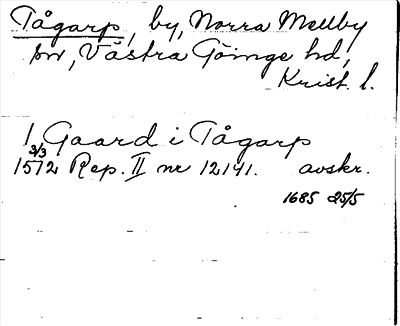 Tågarp, by, Norra Mellby
sn, Västra Göinge hd,
Krist. l.
1 Gaard i Tågarp
3/3
1572 Rep. II nr 12141. avskr.
1685 25/5